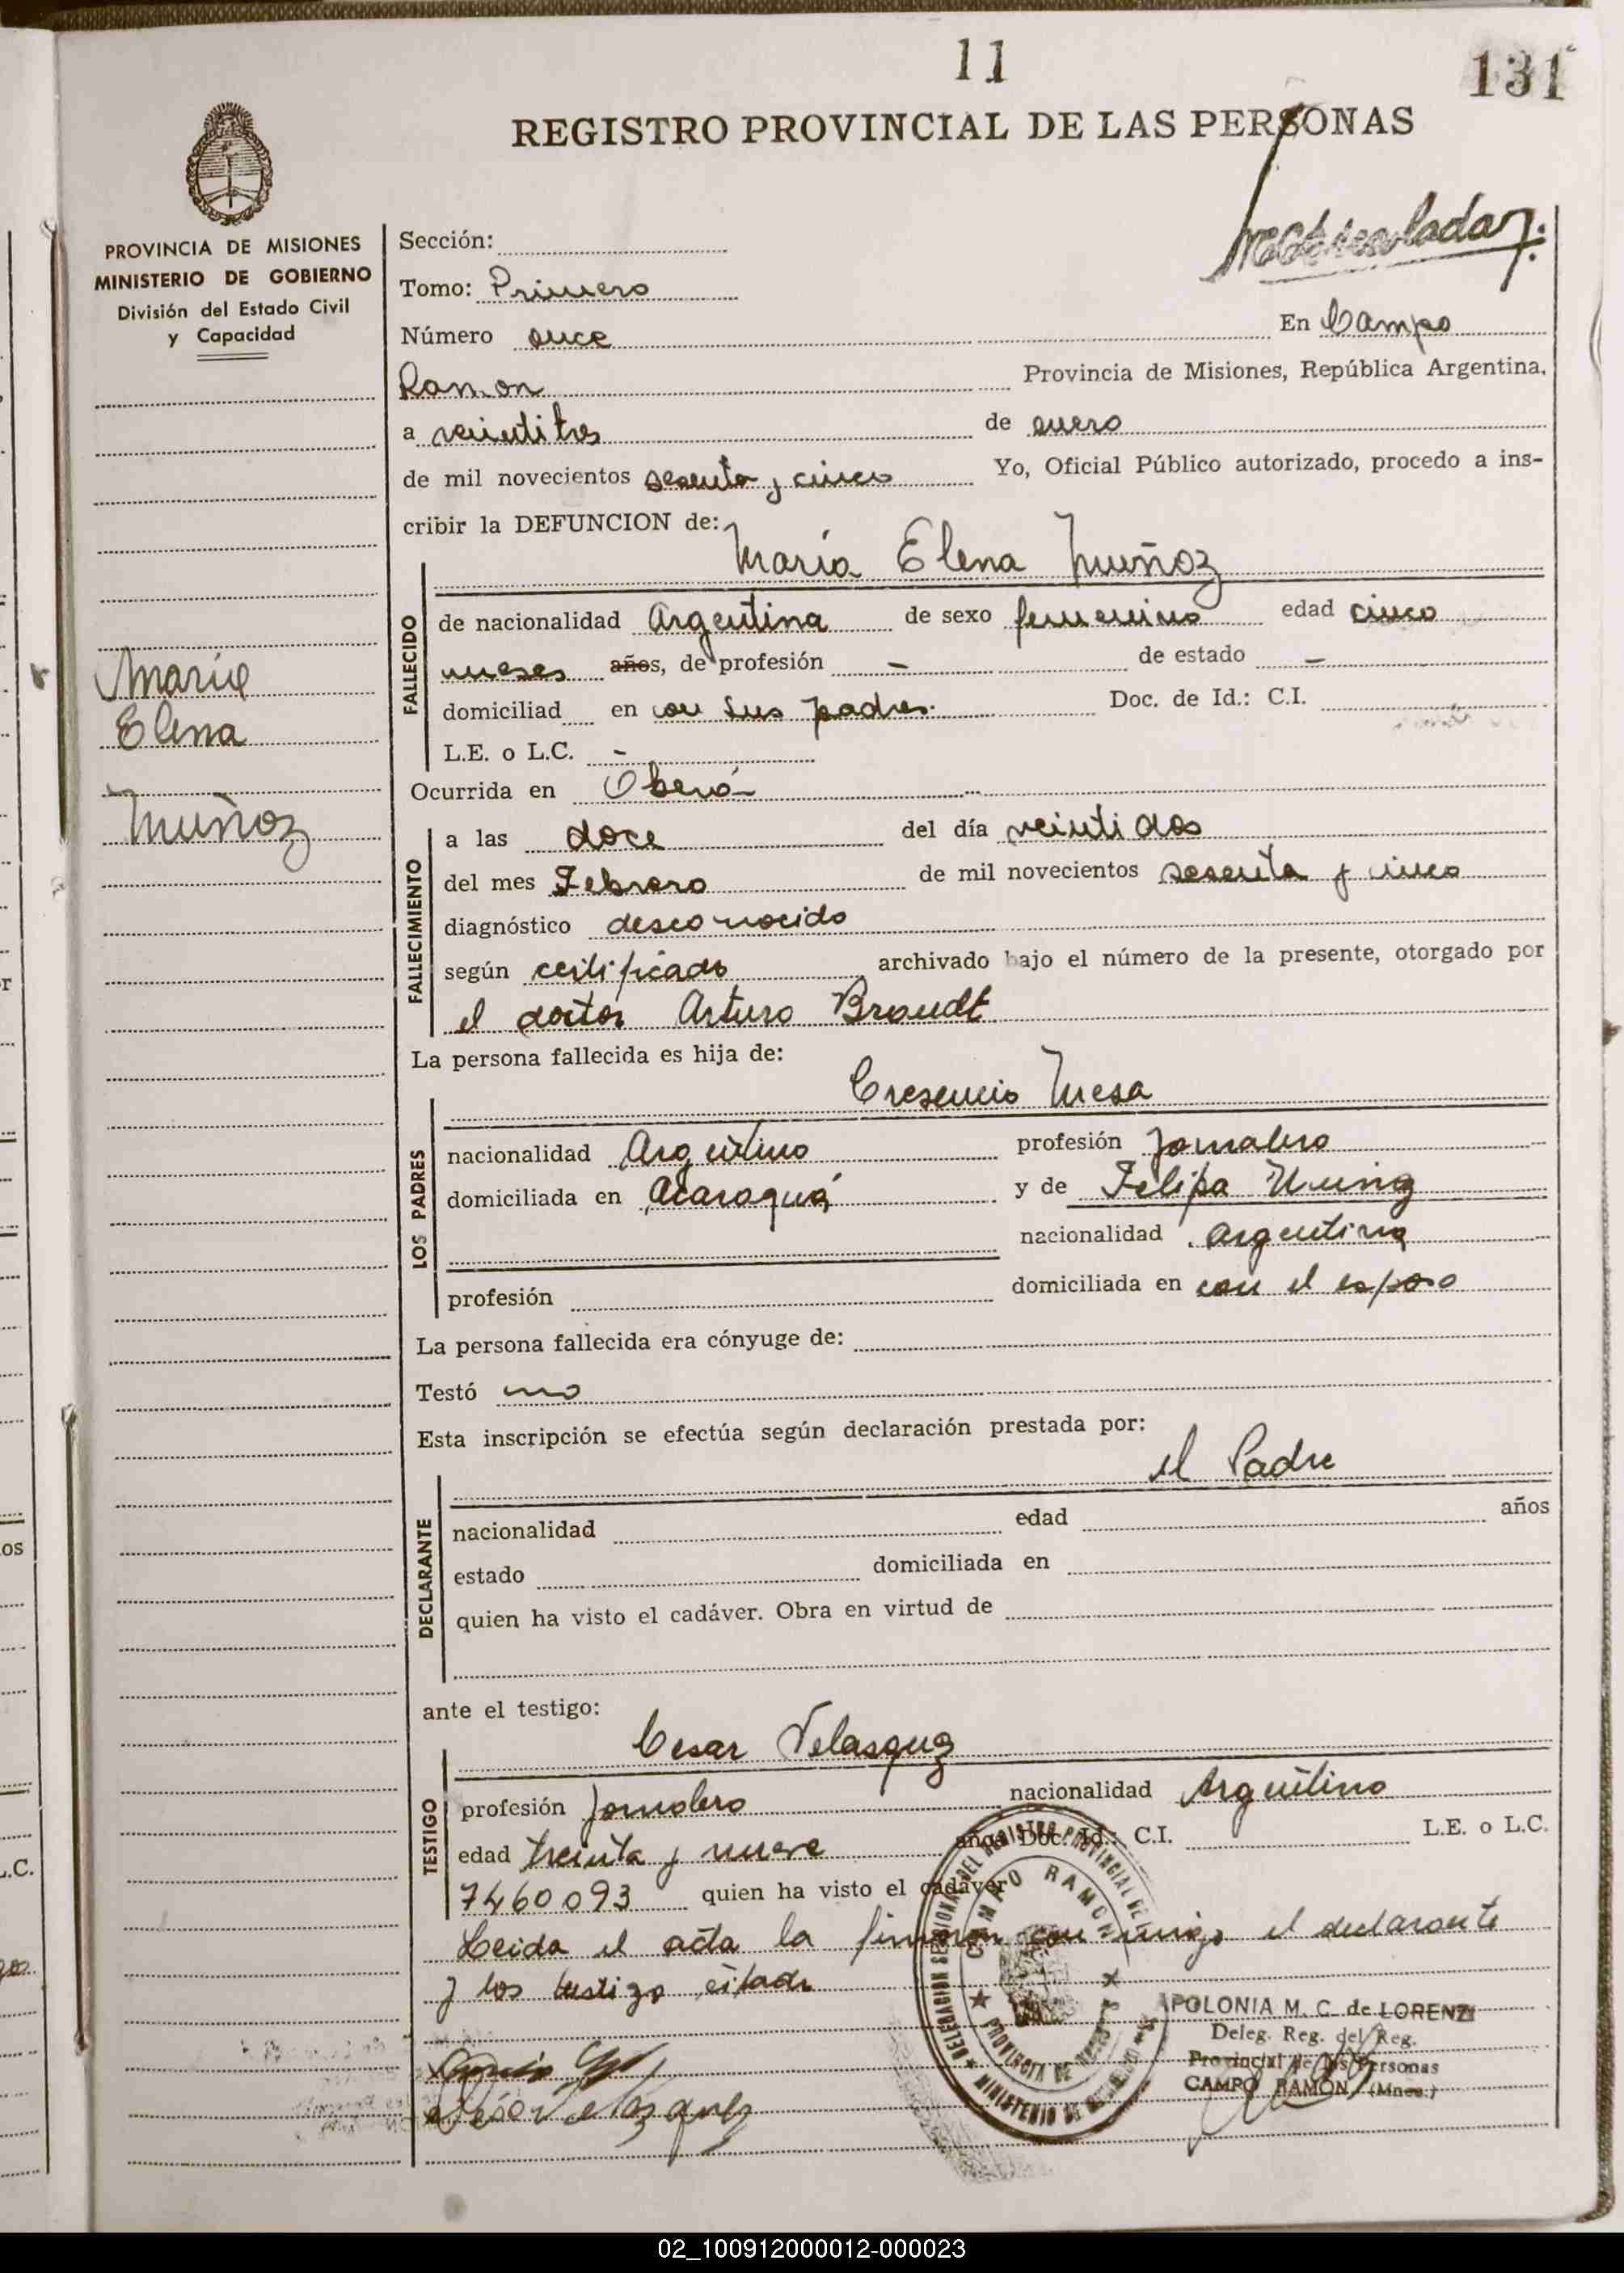 11
131
REGISTRO PROVINCIAL DE LAS PERSONAS
PROVINCIA DE MISIONES
MINISTERIO DE GOBIERNO
División del Estado Civil
y Capacidad
María
Elena
Muñoz
Sección:
Tomo: Primero
Número once En Campo
Ramon Provincia de Misiones, República Argentina,
a veintitres de enero
de mil novecientos sesenta y cinco Yo, Oficial Público autorizado, procedo a ins-
cribir la DEFUNCION de:
María Elena Muñoz
FALLECIDO
de nacionalidad Argentina de sexo femenino edad cinco
meses años, de profesión - de estado -
domiciliad en con sus padres. Doc. de Id.: C.I.
L.E. o L.C. -
Ocurrida en Oberá
FALLECIMIENTO
a las doce del día veintidos
del mes Febrero de mil novecientos sesenta y cinco
diagnóstico desconocido
según certificado archivado bajo el número de la presente, otorgado por
el doctor Arturo Brandt
La persona fallecida es hija de:
Cresencio Mesa
LOS PADRES
nacionalidad Argentino profesión Jornalero
domiciliada en Acaraguá y de Felipa
nacionalidad Argentina
profesión domiciliada en con el esposo
La persona fallecida era cónyuge de:
Testó no
Esta inscripción se efectúa según declaración prestada por:
el Padre
DECLARANTE
nacionalidad edad años
estado domiciliada en
quien ha visto el cadáver. Obra en virtud de
ante el testigo:
Cesar Velasquez
TESTIGO
profesión Jornalero nacionalidad Argentino
edad treinta y nueve años Doc. Id.: C.I. L.E. o L.C.
7460093 quien ha visto el cadáver
Leida el acta la firmaron conmigo el declarante
y los testigo citado
CAMPO RAMON
PROVINCIA DE MISIONES
APOLONIA M. C. de LORENZI
Deleg. Reg. del Reg.
Provincial de las Personas
CAMPO RAMON (Mnes.)
02_100912000012-000023